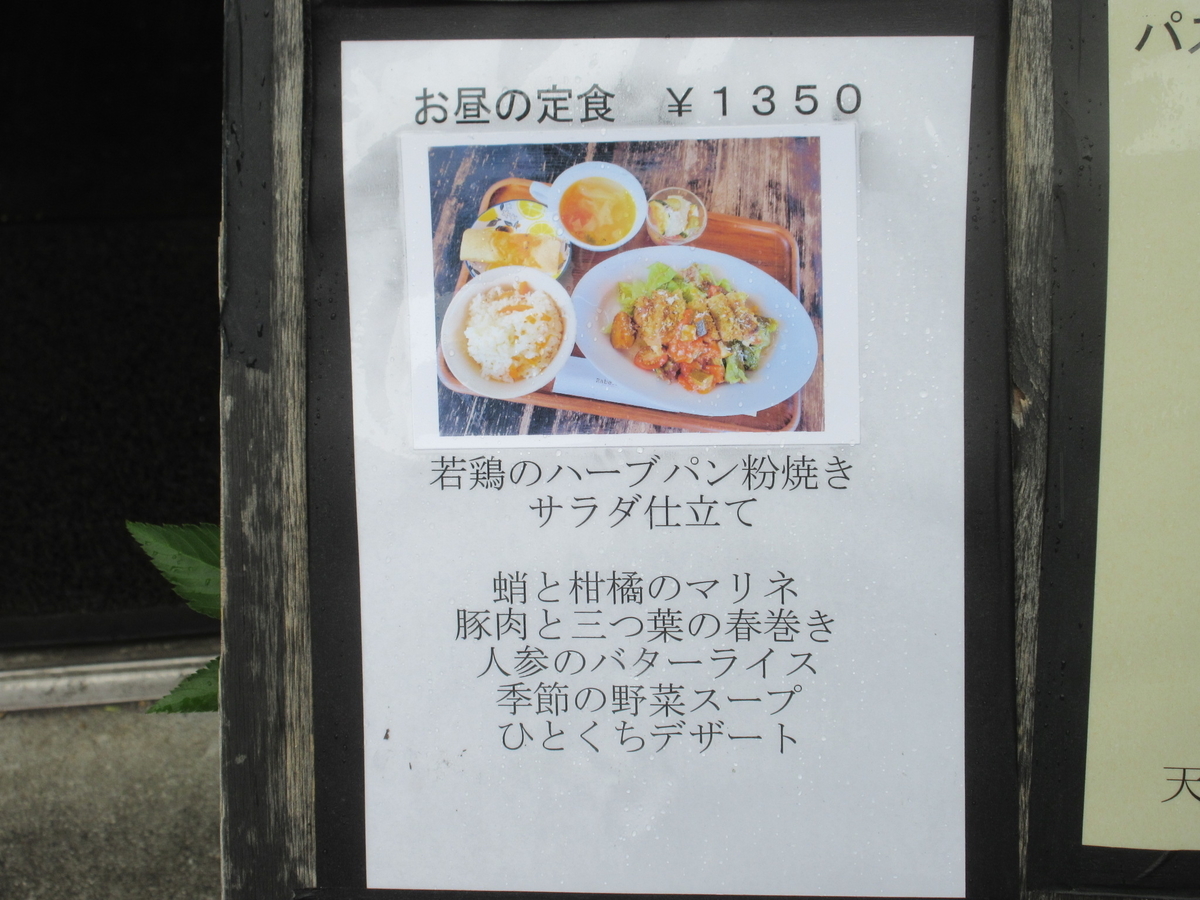 お昼の定食　￥１３５０
若鶏のハーブパン粉焼き
サラダ仕立て
蛸と柑橘のマリネ
豚肉と三つ葉の春巻き
人参のバターライス
季節の野菜スープ
ひとくちデザート
パス
天